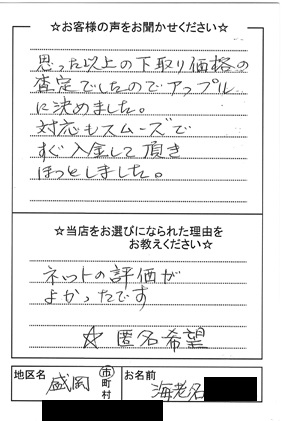 ☆お客様の声をお聞かせください☆
思った以上の下取り価格の
査定でしたのでアップル
に決めました。
対応もスムーズで
すぐ入金して頂き
ほっとしました。
☆当店をお選びになられた理由を
お教えください☆
ネットの評価が
よかったです
☆ 匿名希望
地区名 盛岡 市町村 お名前 海老名